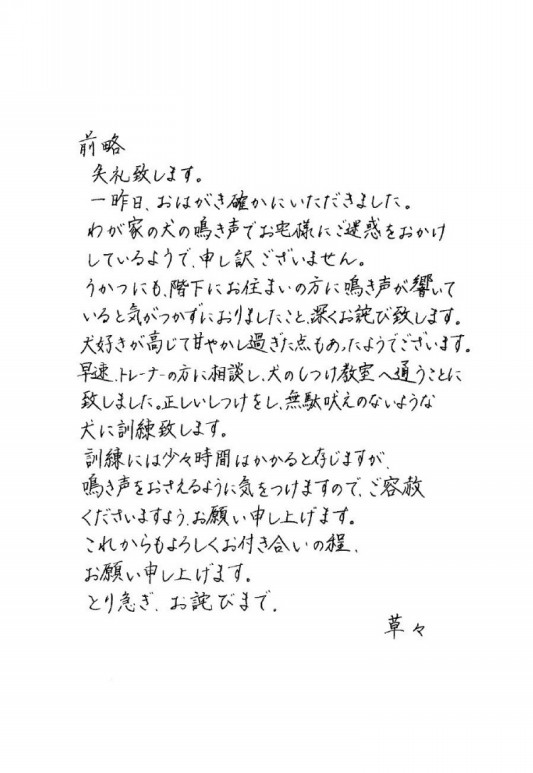 前略
失礼致します。
一昨日、おはがき確かにいただきました。
わが家の犬の鳴き声でお宅様にご迷惑をおかけ
しているようで、申し訳ございません。
うかつにも、階下にお住まいの方に鳴き声が響いて
いると気がつかずにおりましたこと、深くお詫び致します。
犬好きが高じて甘やかし過ぎた点もあったようでございます。
早速、トレーナーの方に相談し、犬のしつけ教室へ通うことに
致しました。正しいしつけをし、無駄吠えのないような
犬に訓練致します。
訓練には少々時間はかかると存じますが、
鳴き声をおさえるように気をつけますので、ご容赦
くださいますよう、お願い申し上げます。
これからもよろしくお付き合いの程、
お願い申し上げます。
とり急ぎ、お詫びまで。
草々